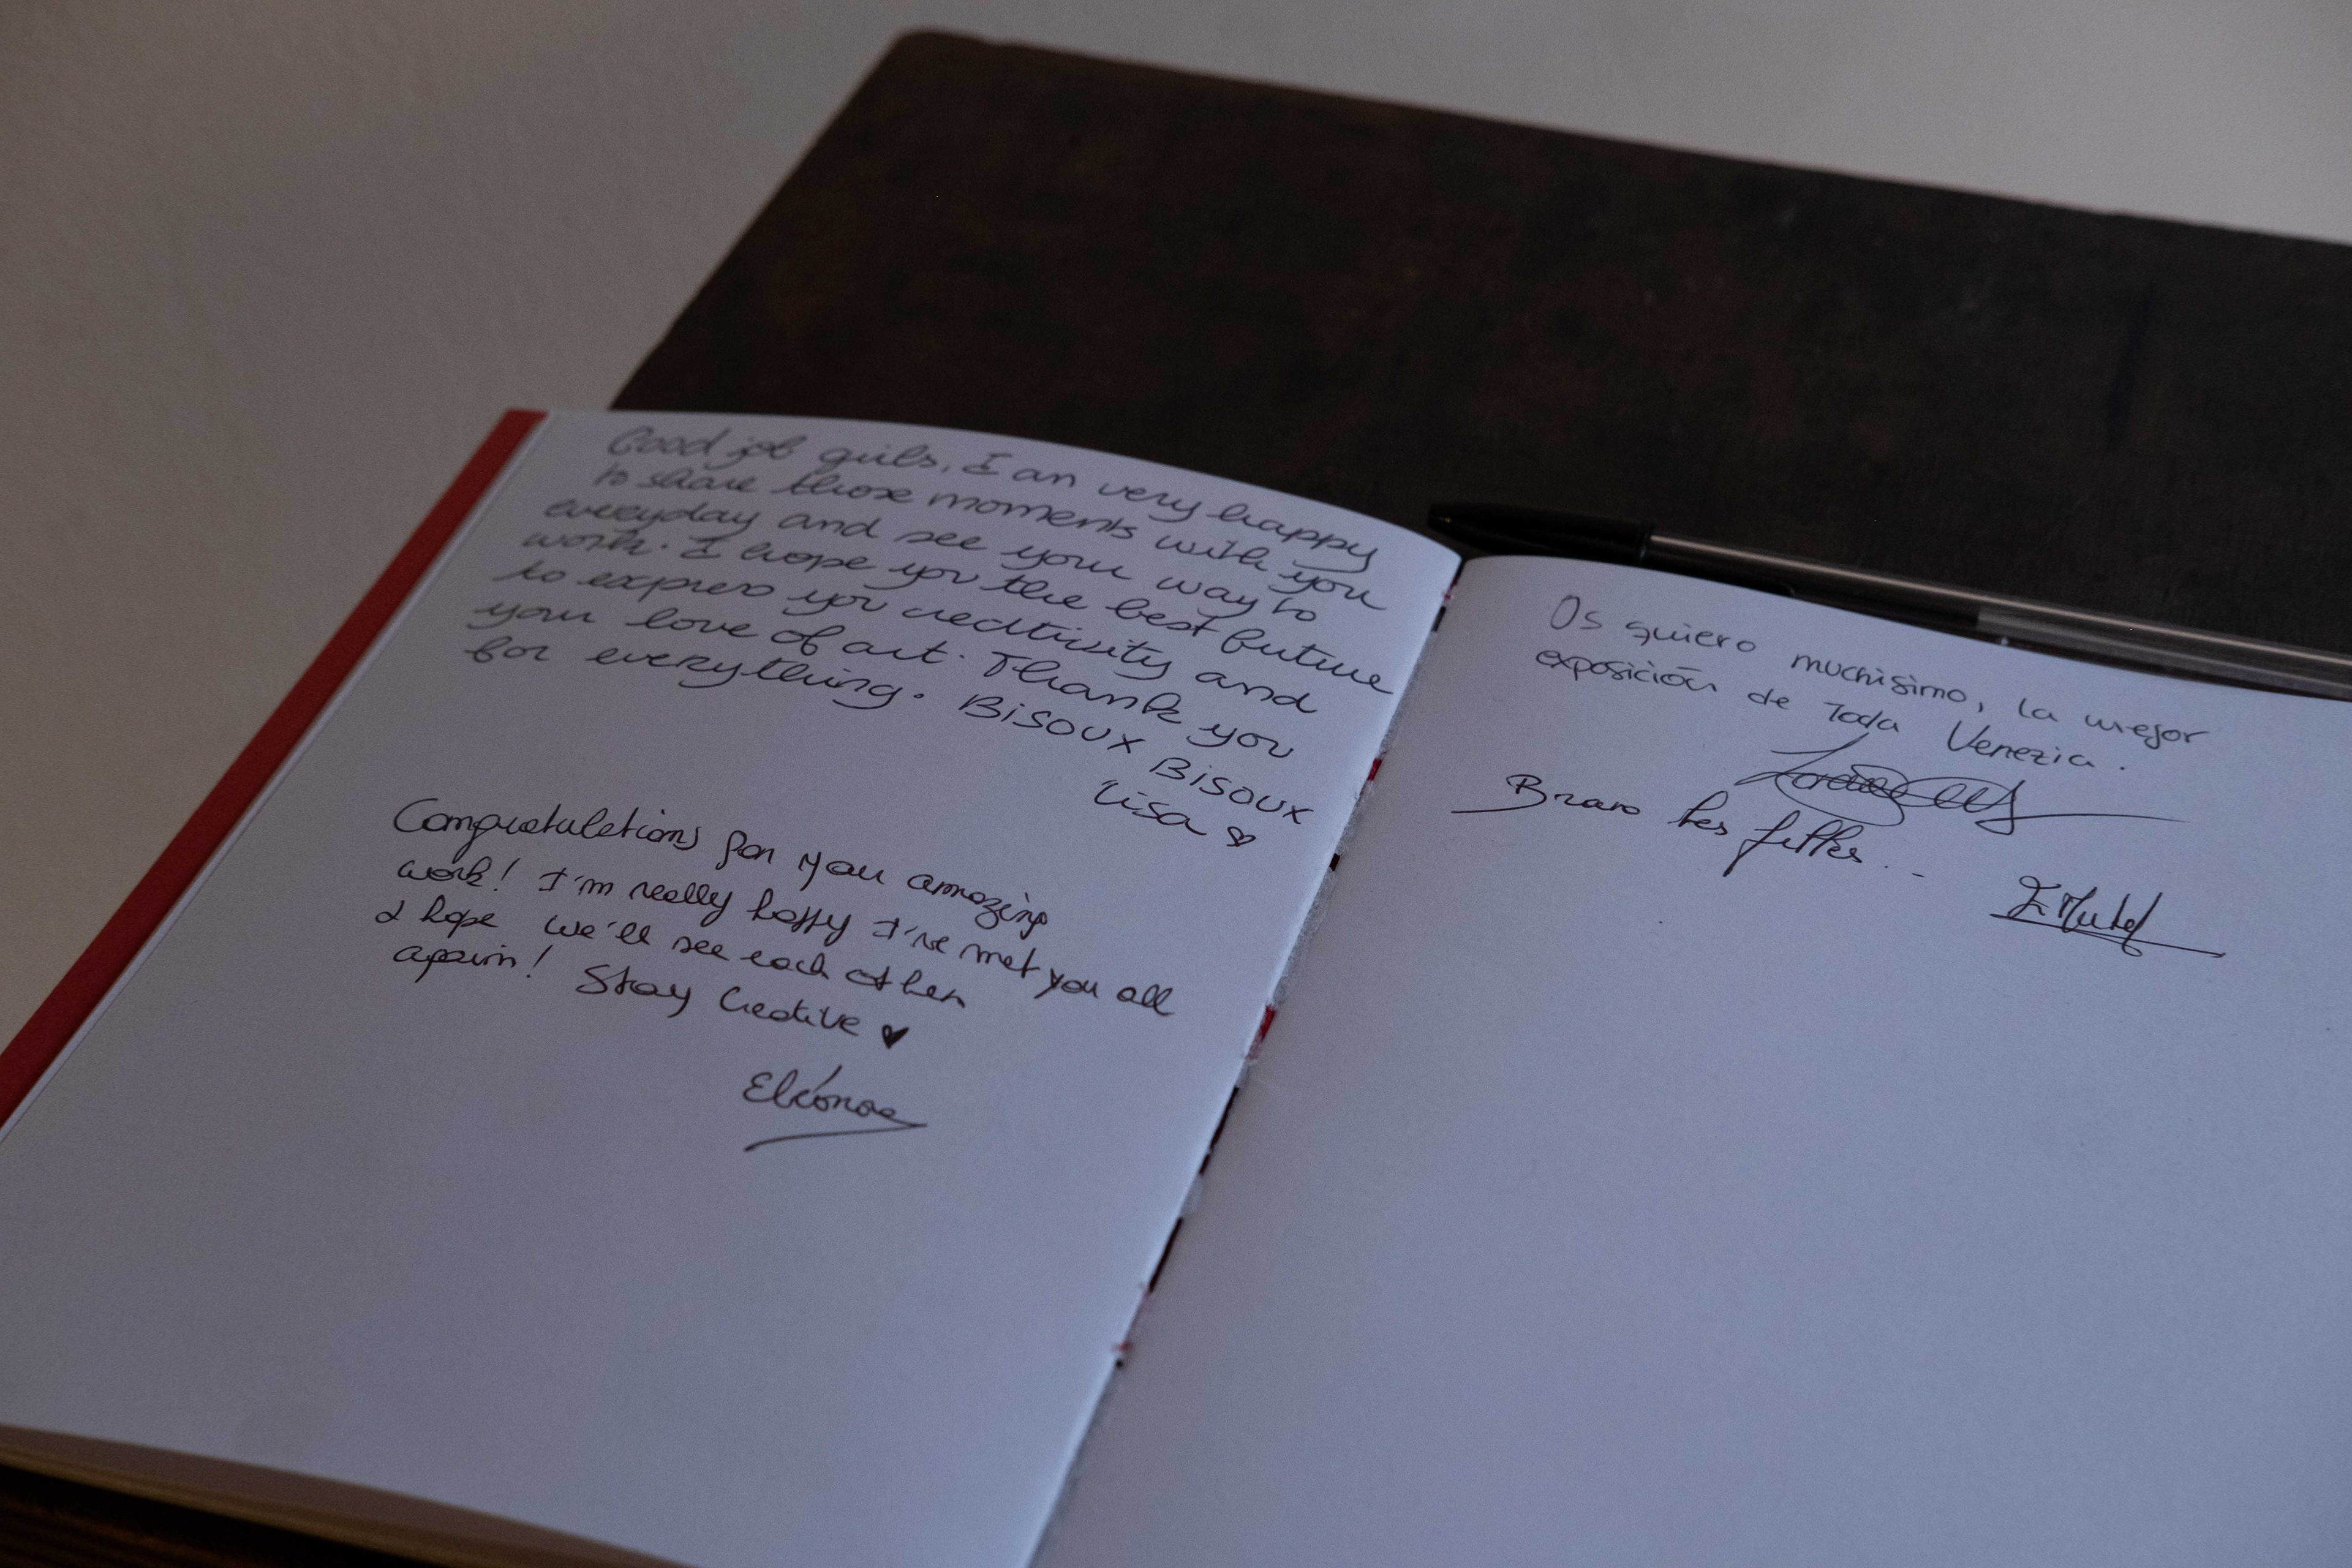 Good job girls, I am very happy
to share those moments with you
everyday and see your way to
work. I hope you the best future
to express you creativity and
your love of art. Thank you
for everything. Bisoux Bisoux
Lisa ♡
Congratulations for your amazing
work! I'm really happy I've met you all
I hope we'll see each other
again! Stay Creative ♥
Eléonore
Os quiero muchísimo, la mejor
exposición de Toda Venezia.
Bravo les filles...